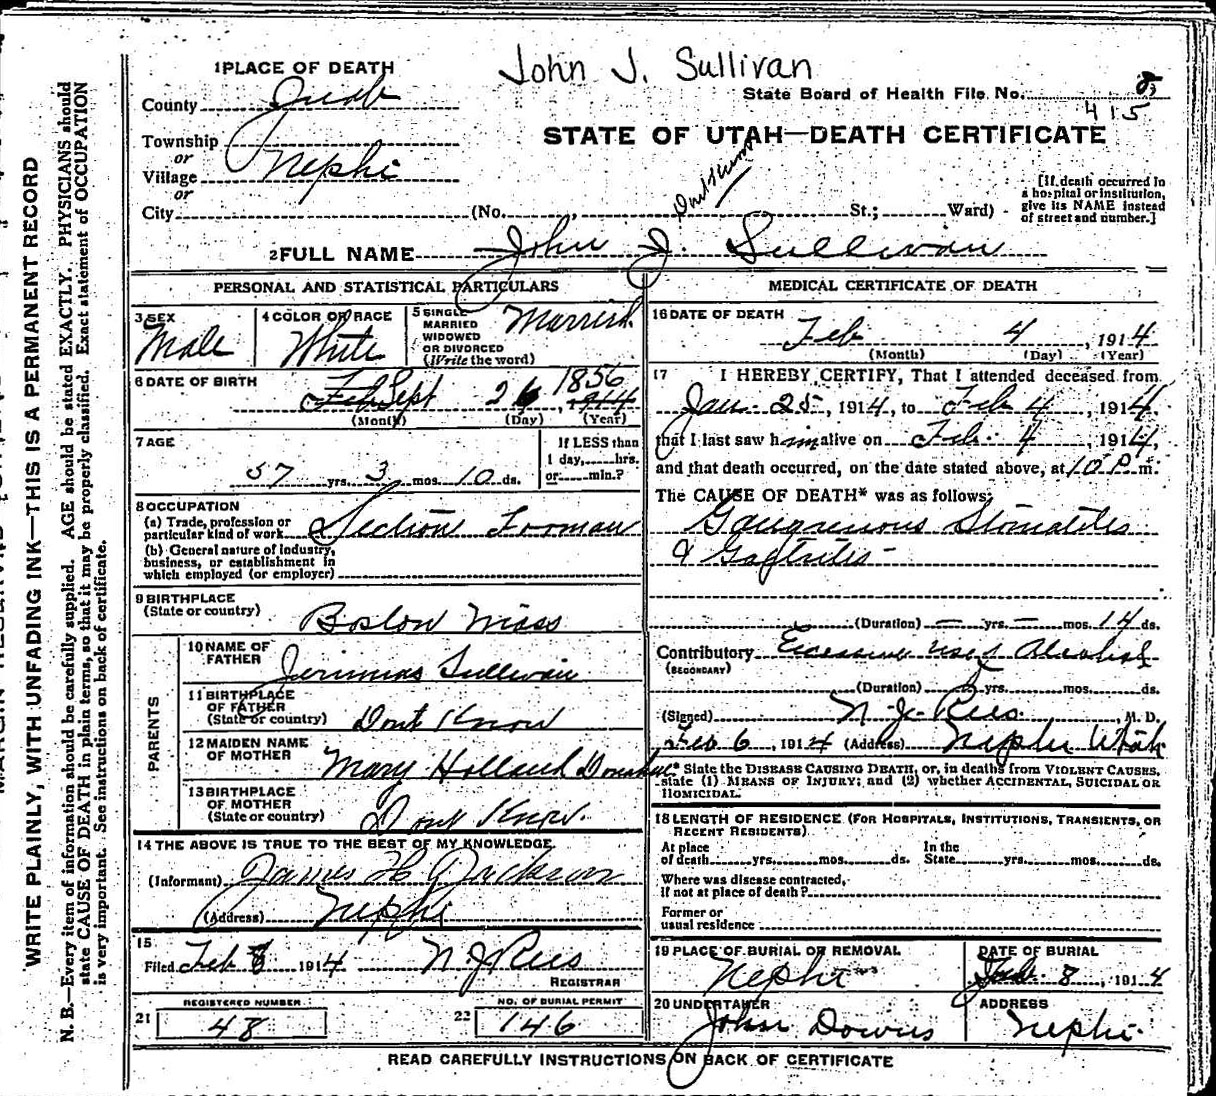 John J. Sullivan
1 PLACE OF DEATH
County Juab
State Board of Health File No. 8
415
STATE OF UTAH—DEATH CERTIFICATE
Township
or
Village Nephi
or
City (No. St.; Ward)
[If death occurred in a hospital or institution, give its NAME instead of street and number.]
2 FULL NAME John J. Sullivan
PERSONAL AND STATISTICAL PARTICULARS
3 SEX
Male
4 COLOR OR RACE
White
5 SINGLE
MARRIED
WIDOWED
OR DIVORCED
(Write the word)
Married
6 DATE OF BIRTH
Feb Sept 26 1856 1914
(Month) (Day) (Year)
7 AGE
57 yrs. 3 mos. 10 ds.
If LESS than
1 day, hrs.
or min.?
8 OCCUPATION
(a) Trade, profession or
particular kind of work Section Forman
(b) General nature of industry,
business, or establishment in
which employed (or employer)
9 BIRTHPLACE
(State or country) Boston Mass
PARENTS
10 NAME OF
FATHER Sullivan
11 BIRTHPLACE
OF FATHER
(State or country) Dont Know
12 MAIDEN NAME
OF MOTHER Mary Holland
13 BIRTHPLACE
OF MOTHER
(State or country) Dont Know.
14 THE ABOVE IS TRUE TO THE BEST OF MY KNOWLEDGE
(Informant) James H Jackson
(Address) Nephi
15
Filed Feb 8 1914 N J Rees
REGISTRAR
REGISTERED NUMBER
21 48
NO. OF BURIAL PERMIT
22 146
MEDICAL CERTIFICATE OF DEATH
16 DATE OF DEATH
Feb 4, 1914
(Month) (Day) (Year)
17 I HEREBY CERTIFY, That I attended deceased from
Jan. 25, 1914, to Feb 4, 1914,
that I last saw him alive on Feb. 4, 1914,
and that death occurred, on the date stated above, at 10 P. m.
The CAUSE OF DEATH* was as follows:
Gangrenous Stomatitis
& Gastritis
(Duration) — yrs. — mos. 14 ds.
Contributory Excessive use of Alcohol
(SECONDARY)
(Duration) yrs. mos. ds.
(Signed) N. J. Rees, M. D.
Feb 6, 1914 (Address) Nephi Utah
* State the DISEASE CAUSING DEATH, or, in deaths from VIOLENT CAUSES,
state (1) MEANS OF INJURY; and (2) whether ACCIDENTAL, SUICIDAL OR
HOMICIDAL.
18 LENGTH OF RESIDENCE (FOR HOSPITALS, INSTITUTIONS, TRANSIENTS, OR
RECENT RESIDENTS)
At place
of death yrs. mos. ds.
In the
State yrs. mos. ds.
Where was disease contracted,
If not at place of death?
Former or
usual residence
19 PLACE OF BURIAL OR REMOVAL
Nephi
DATE OF BURIAL
Feb. 8, 1914
20 UNDERTAKER
John Downs
ADDRESS
Nephi
READ CAREFULLY INSTRUCTIONS ON BACK OF CERTIFICATE
WRITE PLAINLY, WITH UNFADING INK—THIS IS A PERMANENT RECORD
N. B.—Every item of information should be carefully supplied. AGE should be stated EXACTLY. PHYSICIANS should
state CAUSE OF DEATH in plain terms, so that it may be properly classified. Exact statement of OCCUPATION
is very important. See instructions on back of certificate.